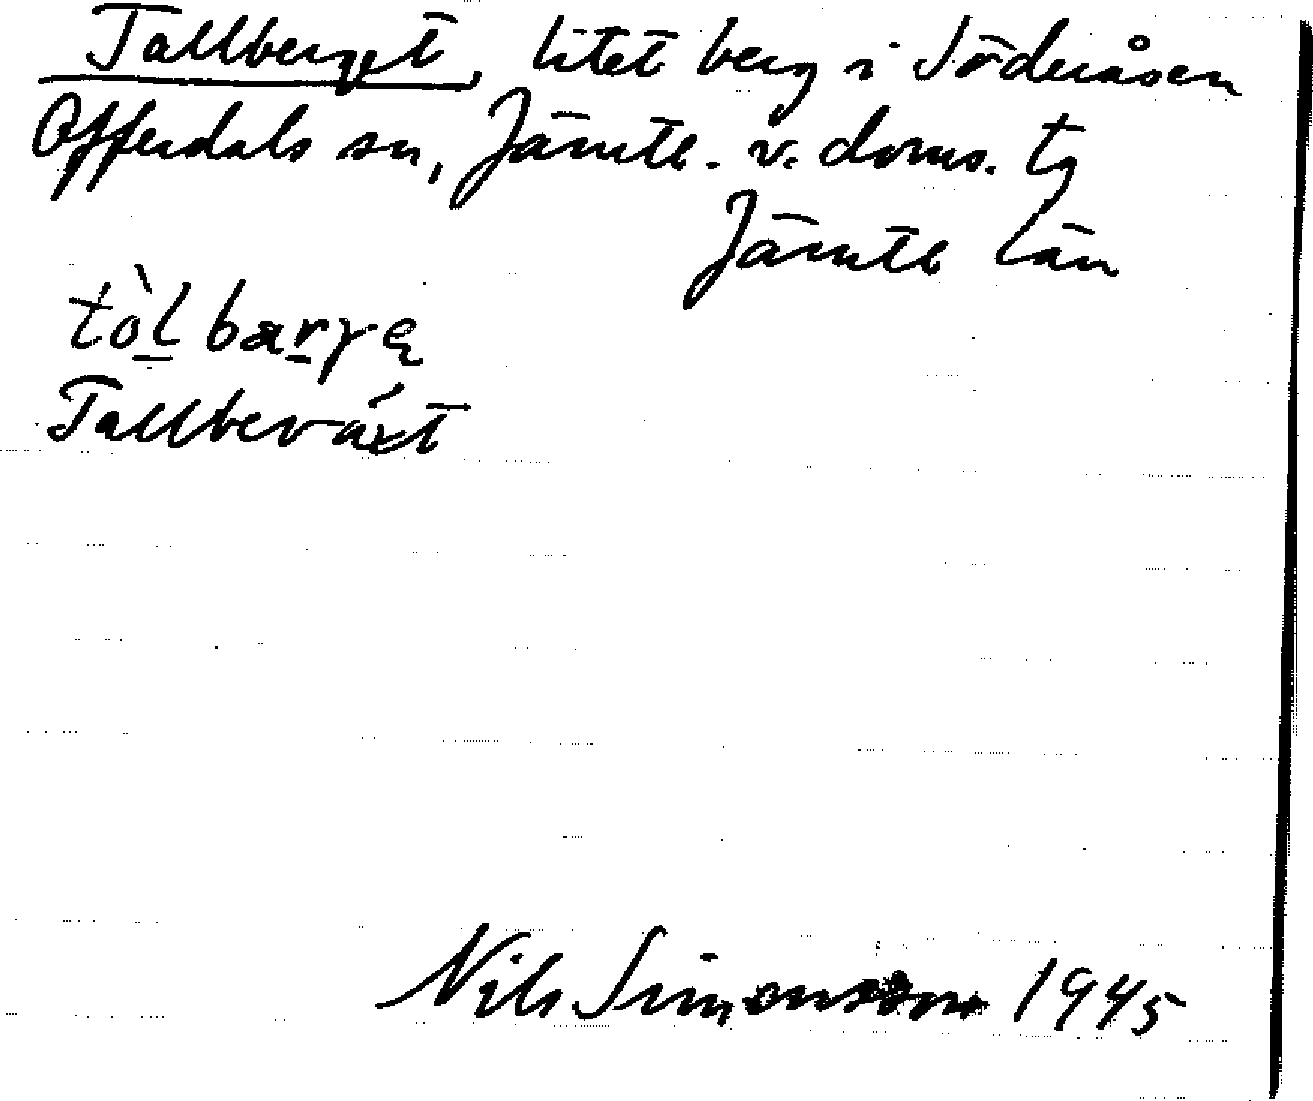 Tallberget, litet berg i Söderåsen
Offerdals sn, Jämtl. v. doms. tg
Jämtl. län
tòl̠bar̠γę
Tallbeväxt
Nils Simonsson 1945